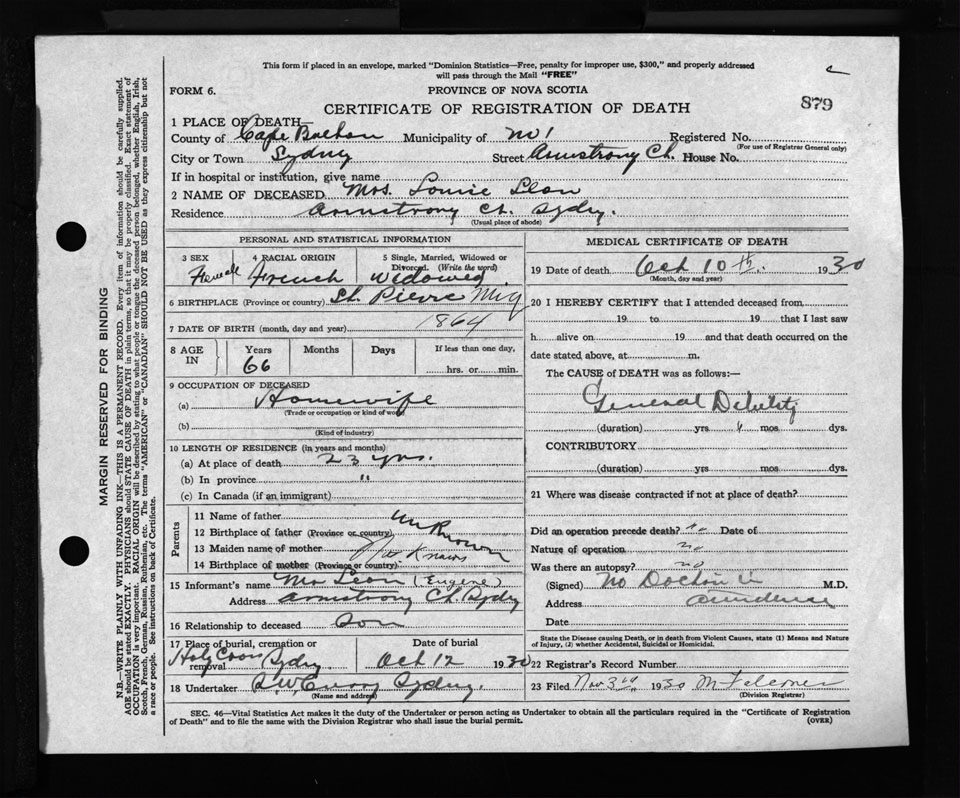 This form if placed in an envelope, marked "Dominion Statistics—Free, penalty for improper use, $300," and properly addressed
will pass through the Mail "FREE"
FORM 6.
PROVINCE OF NOVA SCOTIA
CERTIFICATE OF REGISTRATION OF DEATH
879
1 PLACE OF DEATH—
County of Cape Breton Municipality of No 1 Registered No.
(For use of Registrar General only)
City or Town Sydney Street Armstrong Ct. House No.
If in hospital or institution, give name
2 NAME OF DECEASED Mrs. Louise Leon
Residence Armstrong Ct. Sydny.
(Usual place of abode)
PERSONAL AND STATISTICAL INFORMATION
3 SEX 4 RACIAL ORIGIN 5 Single, Married, Widowed or Divorced. (Write the word)
Female French Widowed
6 BIRTHPLACE (Province or country) St. Pierre Miq
7 DATE OF BIRTH (month, day and year) 1864
8 AGE IN Years Months Days If less than one day,
66 hrs. or min.
9 OCCUPATION OF DECEASED
(a) Housewife
(Trade or occupation or kind of work)
(b)
(Kind of industry)
10 LENGTH OF RESIDENCE (in years and months)
(a) At place of death 23 yrs.
(b) In province "
(c) In Canada (if an immigrant)
Parents
11 Name of father Unknown
12 Birthplace of father (Province or country)
13 Maiden name of mother
14 Birthplace of mother (Province or country)
15 Informant's name Mr Leon (Eugene)
Address Armstrong Ct. Sydny
16 Relationship to deceased Son
17 Place of burial, cremation or removal Date of burial
Holy Cross Sydny. Oct 12 1930
18 Undertaker Sydney.
(Name and address)
MEDICAL CERTIFICATE OF DEATH
19 Date of death Oct 10th. 1930
(Month, day and year)
20 I HEREBY CERTIFY that I attended deceased from
19 to 19 that I last saw
h alive on 19 and that death occurred on the
date stated above, at m.
The CAUSE of DEATH was as follows:—
General Debility
(duration) yrs 4 mos dys.
CONTRIBUTORY
(duration) yrs mos dys.
21 Where was disease contracted if not at place of death?
Did an operation precede death? no Date of
Nature of operation no
Was there an autopsy? no
(Signed) No Doctor in M.D.
Address attendance
Date
State the Disease causing Death, or in death from Violent Causes, state (1) Means and Nature
of Injury, (2) whether Accidental, Suicidal or Homicidal.
22 Registrar's Record Number
23 Filed Nov 3rd 1930
(Division Registrar)
SEC. 46—Vital Statistics Act makes it the duty of the Undertaker or person acting as Undertaker to obtain all the particulars required in the "Certificate of Registration
of Death" and to file the same with the Division Registrar who shall issue the burial permit. (OVER)
MARGIN RESERVED FOR BINDING
N.B.—WRITE PLAINLY WITH UNFADING INK—THIS IS A PERMANENT RECORD. Every item of information should be carefully supplied.
AGE should be stated EXACTLY. PHYSICIANS should STATE CAUSE OF DEATH in plain terms, so that it may be properly classified. Exact statement of
OCCUPATION is very important. RACIAL ORIGIN will be described by stating to what people or tongue the deceased person belonged, whether English, Irish,
Scotch, French, German, Russian, Ruthenian, etc. The terms "AMERICAN" or "CANADIAN" SHOULD NOT BE USED as they express citizenship but not
a race or people. See instructions on back of Certificate.